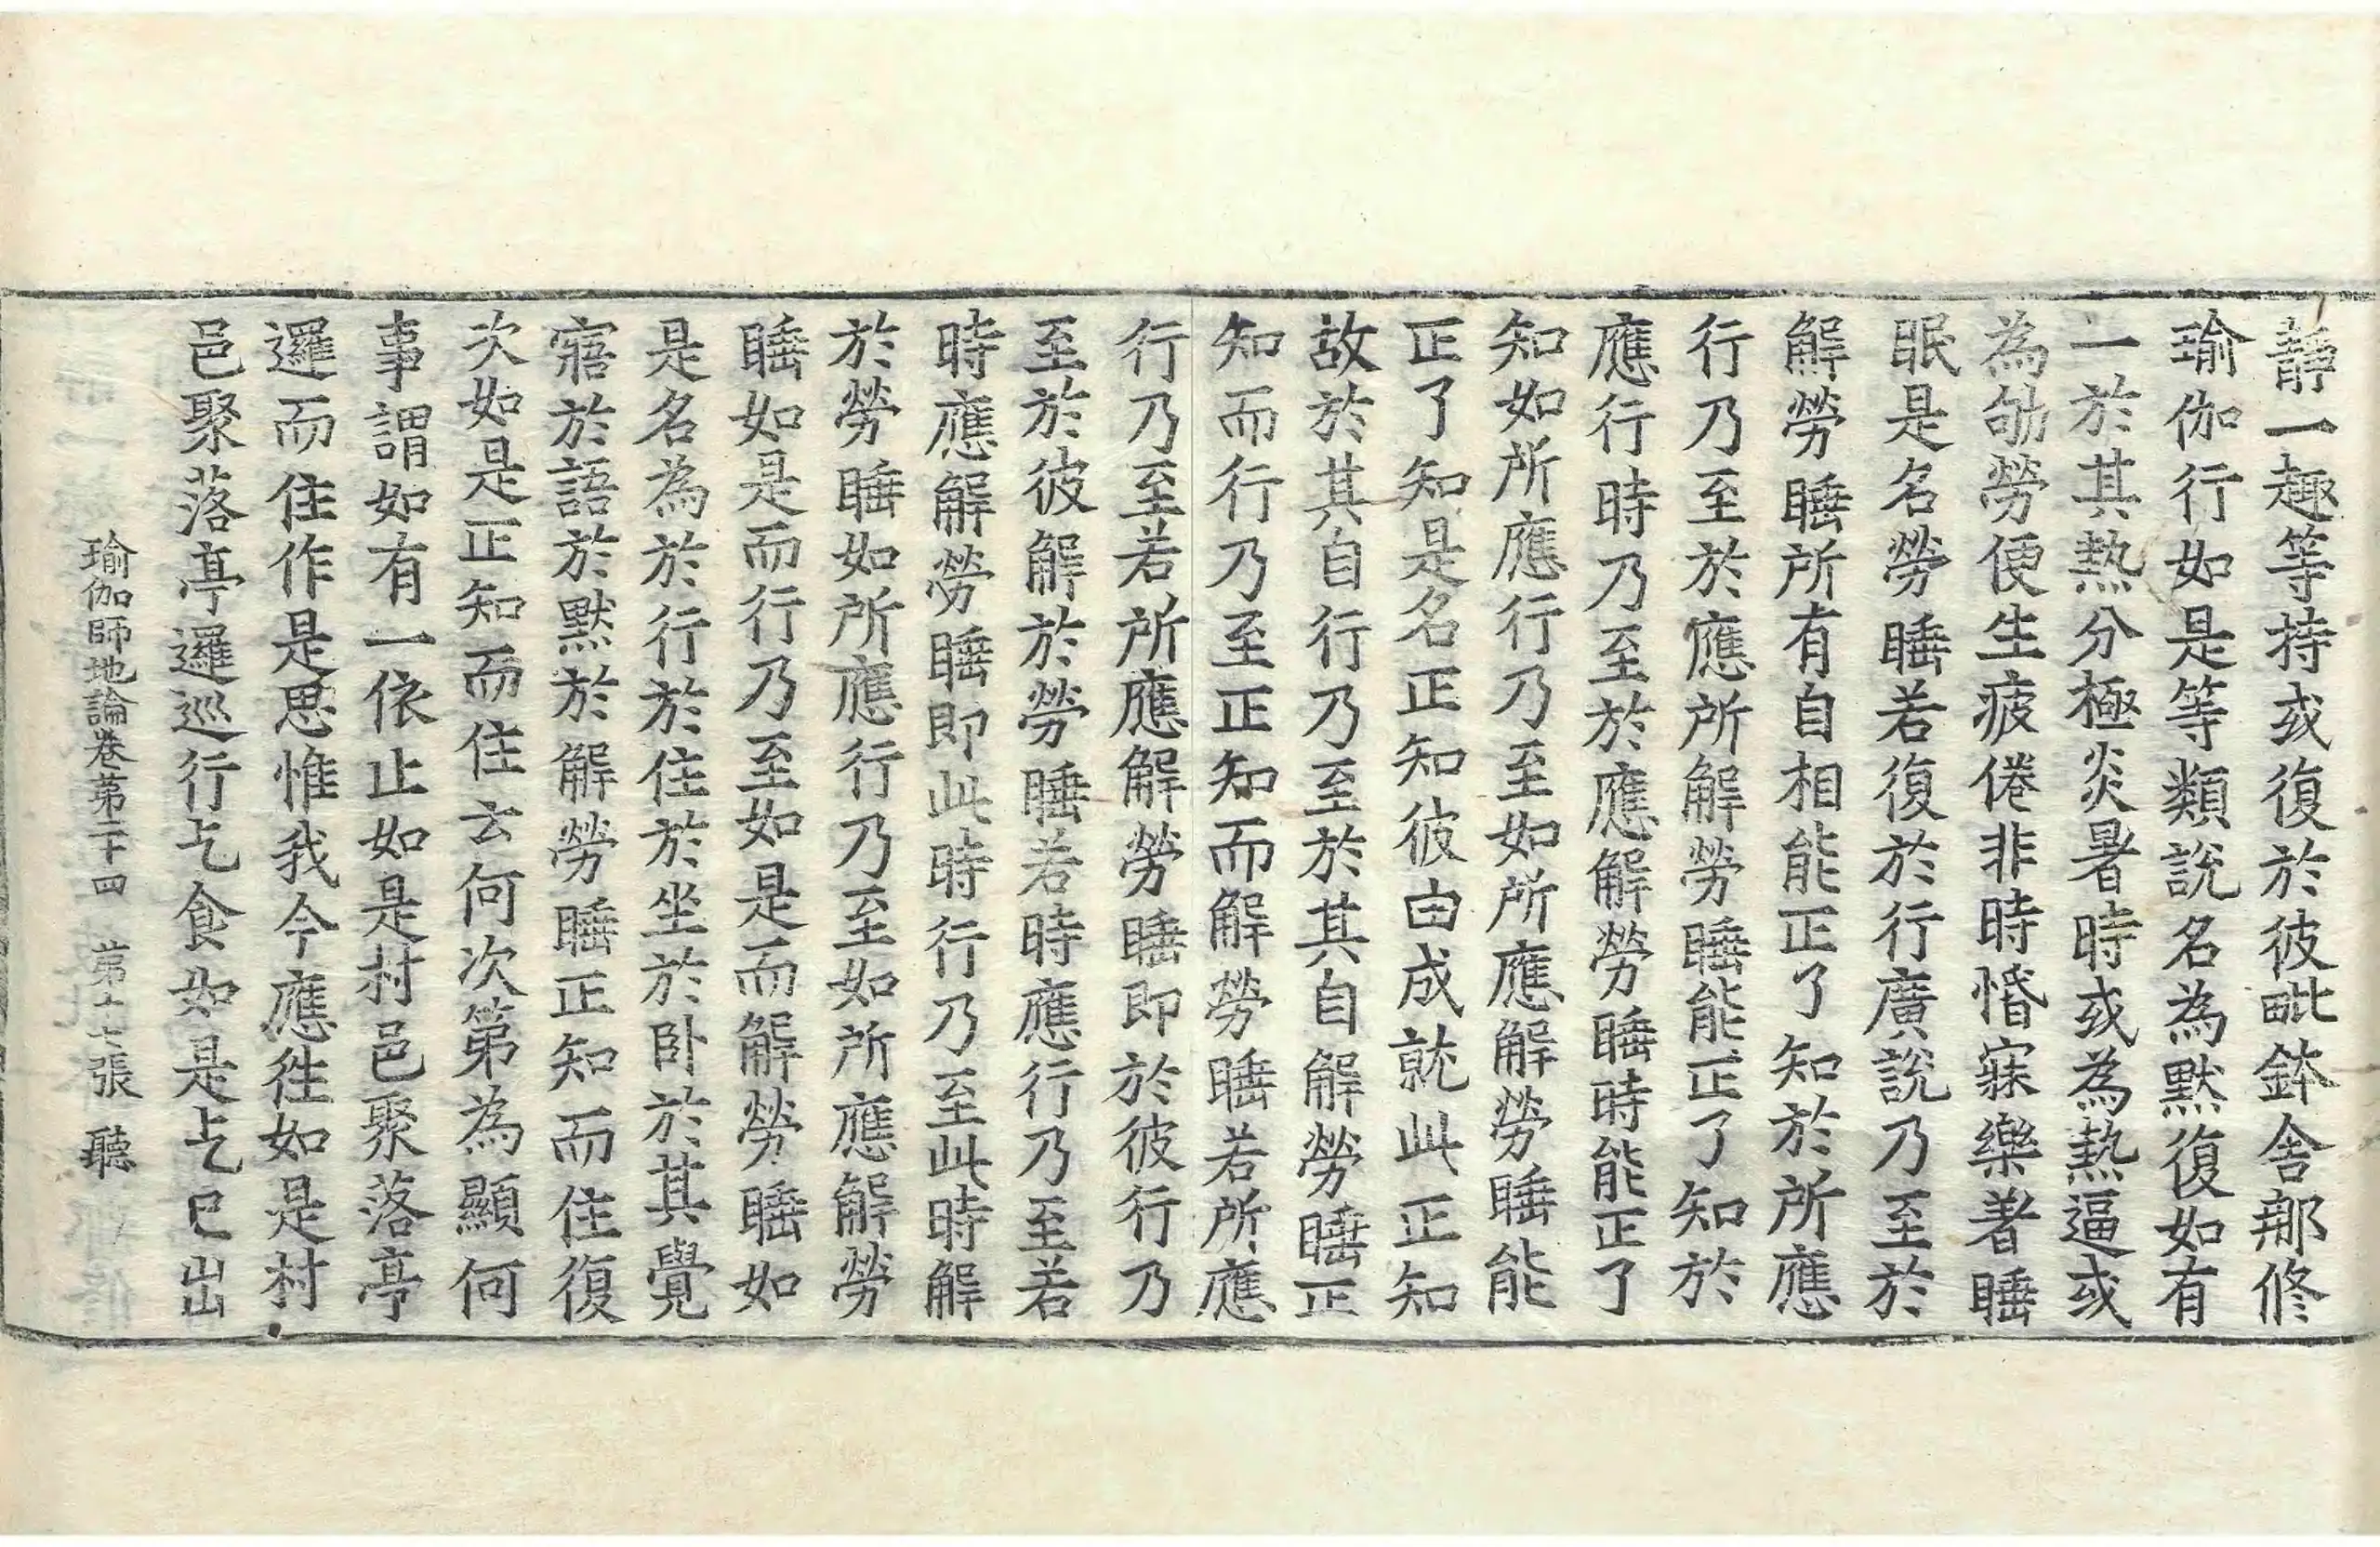 靜一趣等持或復於彼毗鉢舍那修
瑜伽行如是等類說名為默復如有
一於其熱分極炎暑時或為熱逼或
為劬勞便生疲倦非時惛寐樂著睡
眠是名勞睡若復於行廣說乃至於
解勞睡所有自相能正了知於所應
行乃至於應所解勞睡能正了知於
應行時乃至於應解勞睡時能正了
知如所應行乃至如所應解勞睡能
正了知是名正知彼由成就此正知
故於其自行乃至於其自解勞睡正
知而行乃至正知而解勞睡若所應
行乃至若所應解勞睡即於彼行乃
至於彼解於勞睡若時應行乃至若
時應解勞睡即此時行乃至此時解
於勞睡如所應行乃至如所應解勞
睡如是而行乃至如是而解勞睡如
是名為於行於住於坐於卧於其覺
寤於語於默於解勞睡正知而住復
次如是正知而住云何次第為顯何
事謂如有一依止如是村邑聚落亭
邏而住作是思惟我今應往如是村
邑聚落亭邏巡行乞食如是乞已出
瑜伽師地論卷第二十四 第十七張 聽